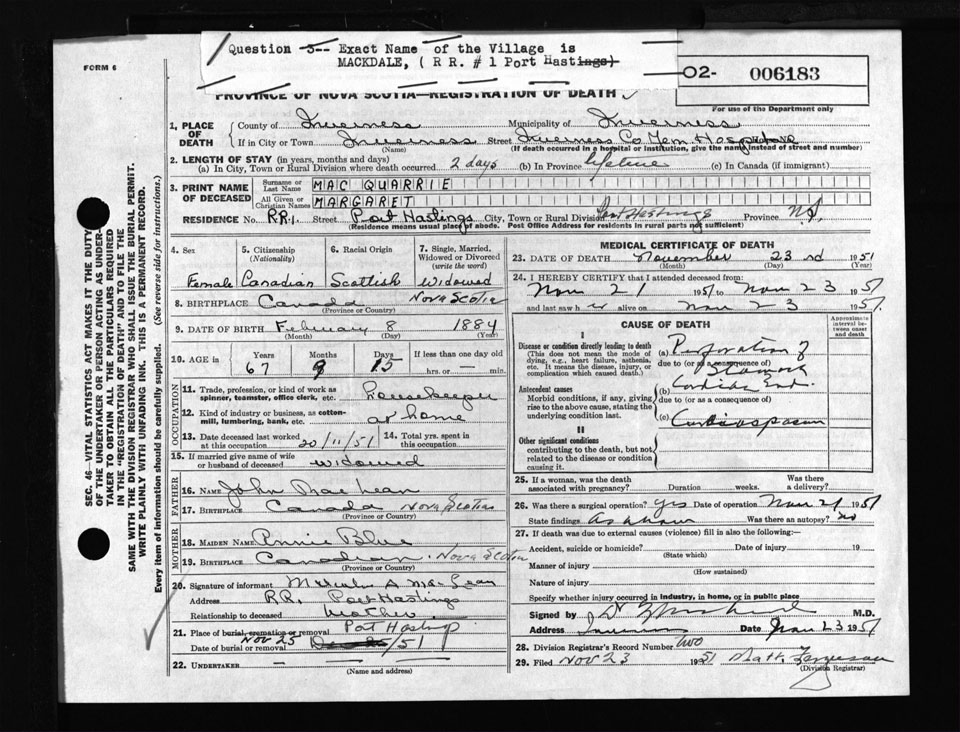 Question 3-- Exact Name of the Village is
MACKDALE, ( R R. # 1 Port Hastings)
FORM 6
O2- 006183
PROVINCE OF NOVA SCOTIA—REGISTRATION OF DEATH
For use of the Department only
1. PLACE OF DEATH
County of Inverness Municipality of Inverness
If in City or Town Inverness Street Inverness Co Mem. Hospital
(If death occurred in a hospital or institution, give the name instead of street and number)
2. LENGTH OF STAY (in years, months and days)
(a) In City, Town or Rural Division where death occurred 2 days (b) In Province lifetime (c) In Canada (if immigrant)
3. PRINT NAME OF DECEASED
Surname or Last Name MAC QUARRIE
All Given or Christian Names MARGARET
RESIDENCE No. R.R.1. Street Port Hastings City, Town or Rural Division Port Hastings Province N.S.
(Residence means usual place of abode. Post Office Address for residents in rural parts not sufficient)
4. Sex Female
5. Citizenship (Nationality) Canadian
6. Racial Origin Scottish
7. Single, Married, Widowed or Divorced (write the word) Widowed
8. BIRTHPLACE Canada Nova Scotia
(Province or Country)
9. DATE OF BIRTH February 8 1884
(Month) (Day) (Year)
10. AGE in Years Months Days If less than one day old
67 9 15 hrs. or — min.
OCCUPATION
11. Trade, profession, or kind of work as spinner, teamster, office clerk, etc. housekeeper
12. Kind of industry or business, as cotton-mill, lumbering, bank, etc. at home
13. Date deceased last worked at this occupation 20/11/51 14. Total yrs. spent in this occupation
15. If married give name of wife or husband of deceased widowed
FATHER
16. NAME John MacLean
17. BIRTHPLACE Canada Nova Scotia
(Province or Country)
MOTHER
18. MAIDEN NAME Annie Blue
19. BIRTHPLACE Canadian. Nova Scotia
(Province or Country)
20. Signature of informant Malcolm A MacLean
Address R.R. Port Hastings
Relationship to deceased
21. Place of burial, cremation or removal Port Hastings
Date of burial or removal Nov 25 /51
22. UNDERTAKER
(Name and address)
MEDICAL CERTIFICATE OF DEATH
23. DATE OF DEATH November 23rd 1951
(Month) (Day) (Year)
24. I HEREBY CERTIFY that I attended deceased from:
Nov 21 1951 to Nov 23 1951
and last saw h er alive on Nov 23 1951
CAUSE OF DEATH
Approximate interval between onset and death
I
Disease or condition directly leading to death
(This does not mean the mode of dying, e.g., heart failure, asthenia, etc. It means the disease, injury, or complication which caused death.)
(a) Perforation of Stomach
due to (or as a consequence of)
Antecedent causes
Morbid conditions, if any, giving rise to the above cause, stating the underlying condition last.
(b)
due to (or as a consequence of)
(c) Cardiospasm
II
Other significant conditions
contributing to the death, but not related to the disease or condition causing it.
25. If a woman, was the death associated with pregnancy? Duration weeks. Was there a delivery?
26. Was there a surgical operation? Yes Date of operation Nov 21 1951
State findings As above Was there an autopsy? no
27. If death was due to external causes (violence) fill in also the following:
Accident, suicide or homicide? Date of injury 19
(State which)
Manner of injury
(How sustained)
Nature of injury
Specify whether injury occurred in industry, in home, or in public place
Signed by M.D.
Address Inverness Date Nov 23 1951
28. Division Registrar's Record Number two
29. Filed Nov 23 1951 Matt. Ferguson
(Division Registrar)
SEC. 46 VITAL STATISTICS ACT MAKES IT THE DUTY
OF THE UNDERTAKER OR PERSON ACTING AS UNDER-
TAKER TO OBTAIN ALL THE PARTICULARS REQUIRED
IN THE "REGISTRATION OF DEATH" AND TO FILE THE
SAME WITH THE DIVISION REGISTRAR WHO SHALL ISSUE THE BURIAL PERMIT.
WRITE PLAINLY WITH UNFADING INK. THIS IS A PERMANENT RECORD.
Every item of information should be carefully supplied. (See reverse side for instructions.)